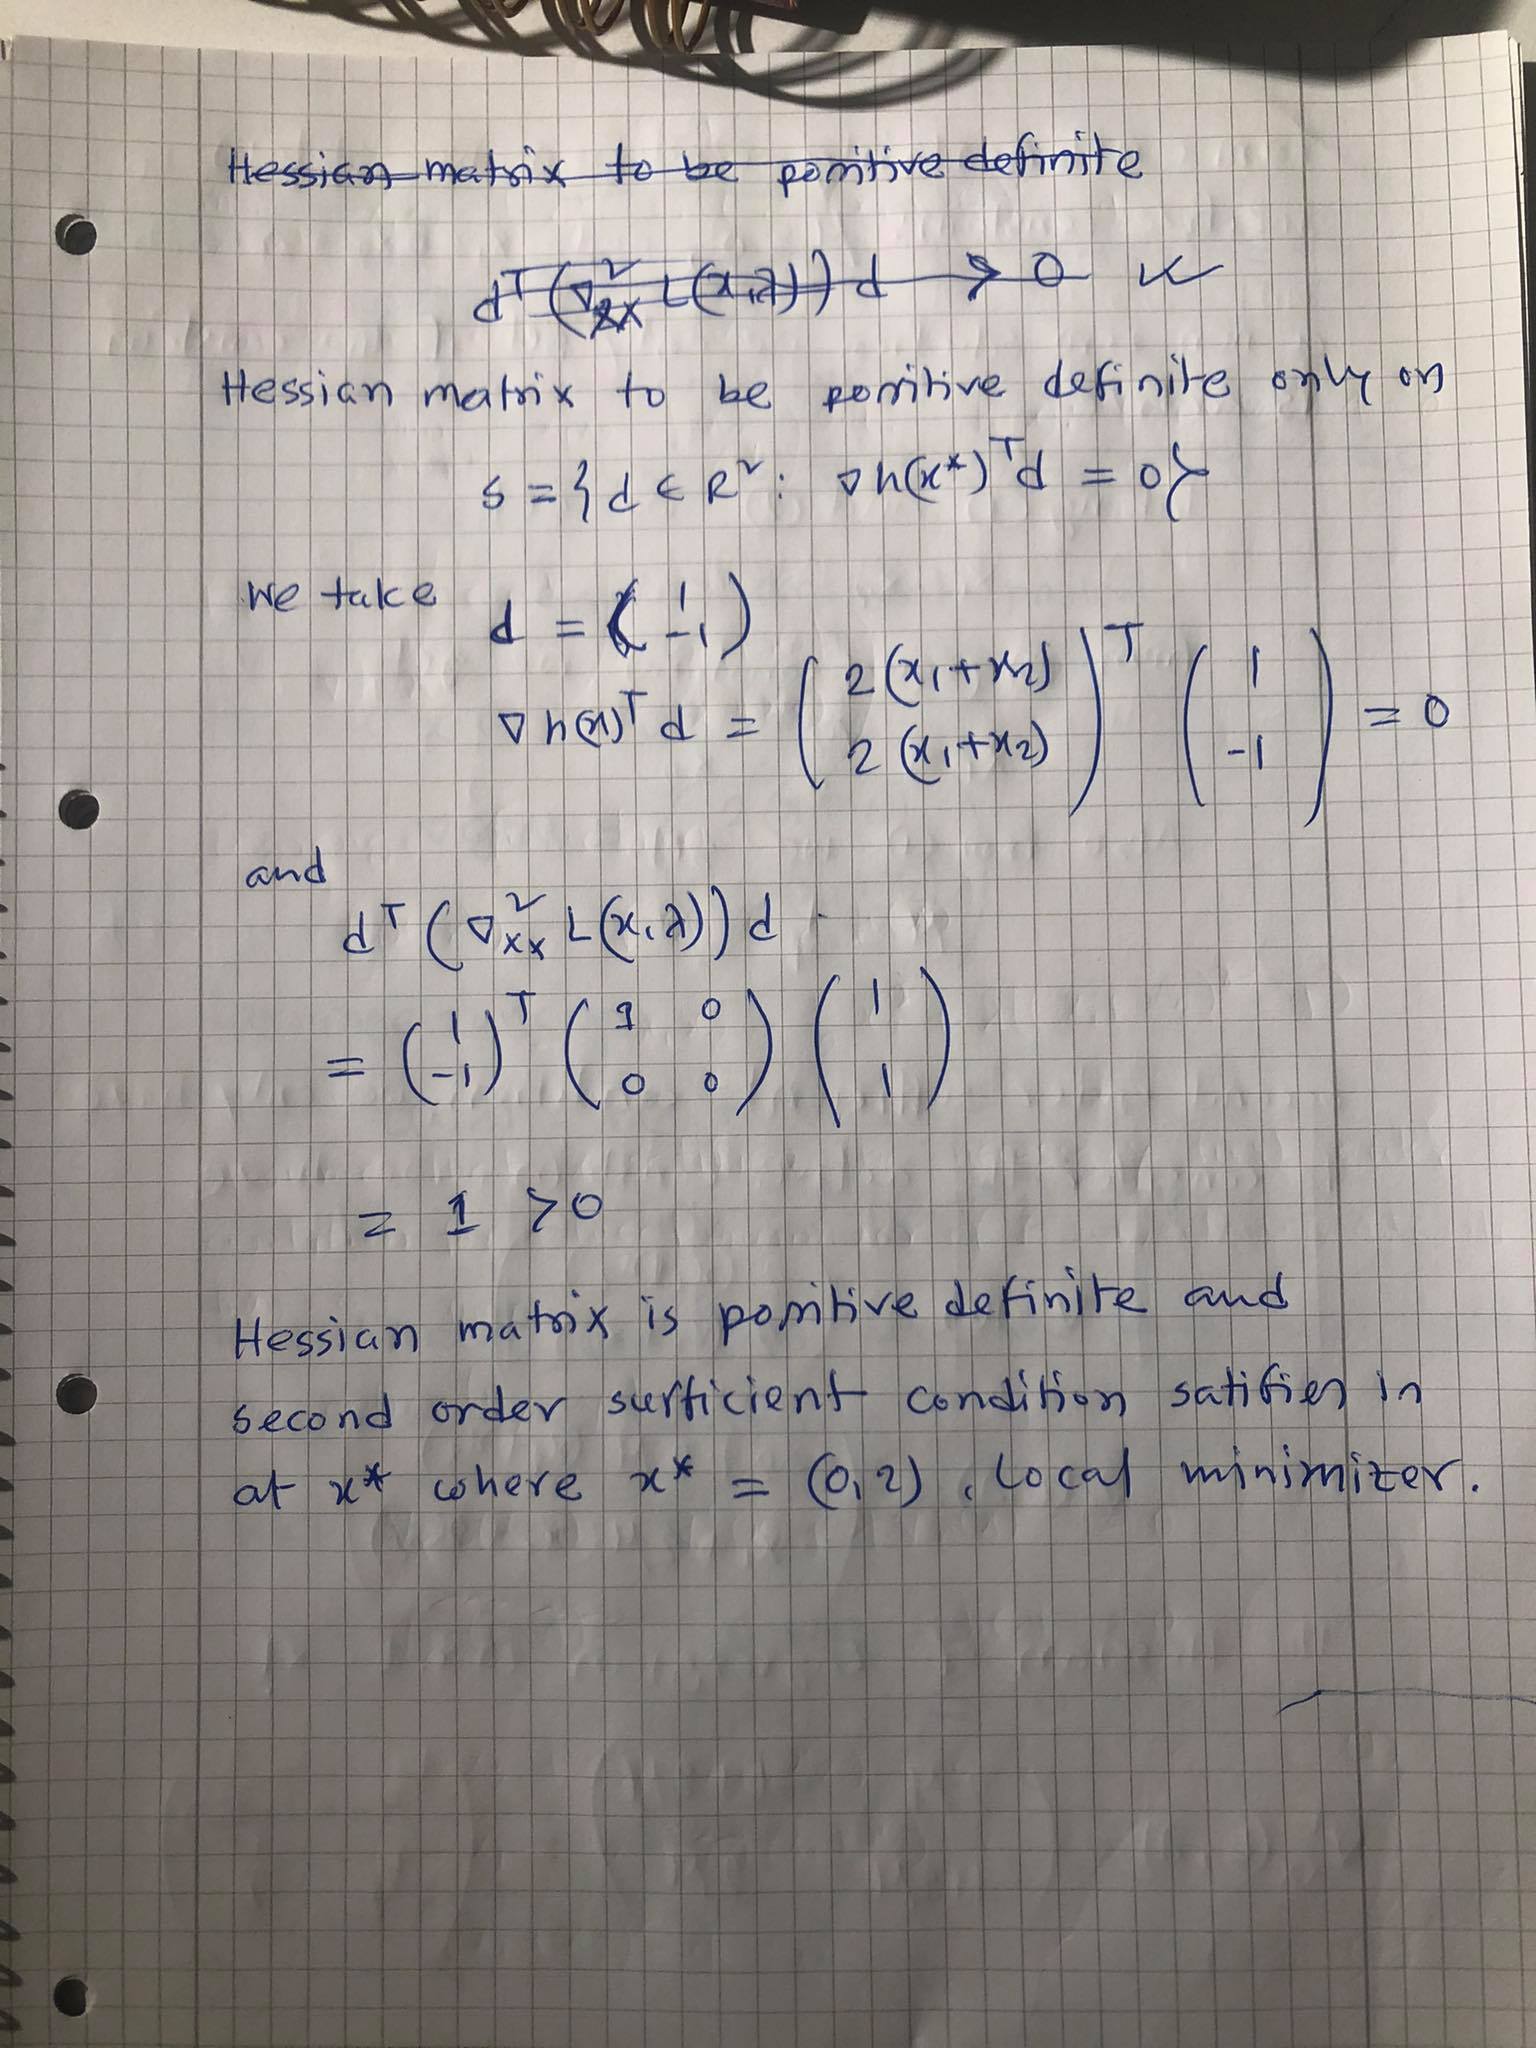 Hessian matrix to be positive definite
d^T (∇²_xx L(x,λ)) d > 0
Hessian matrix to be positive definite only on
S = { d ∈ R² : ∇h(x*)^T d = 0 }
We take d = ( 1 -1 )
∇h(x)^T d = ( 2(x₁+x₂) 2(x₁+x₂) )^T ( 1 -1 ) = 0
and
d^T (∇²_xx L(x,λ)) d
= ( 1 -1 )^T ( 1 0 0 0 ) ( 1 1 )
= 1 > 0
Hessian matrix is positive definite and
second order sufficient condition satifies in
at x* where x* = (0,2), Local minimizer.